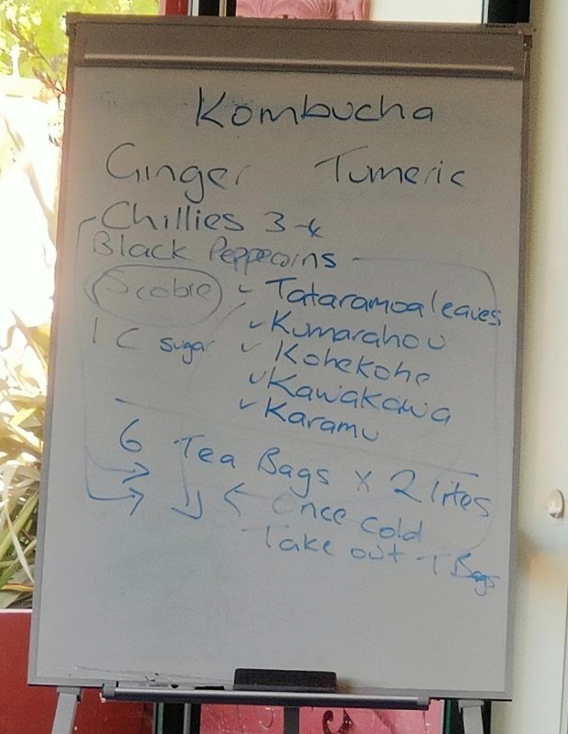 Kombucha
Ginger Tumeric
Chillies 3-4
Black Peppecorns
Scobie
1 C sugar
Tataramoa leaves
Kumarahou
Kohekohe
Kawakawa
Karamu
6 Tea Bags x 2 lites
Once cold
Take out T Bags